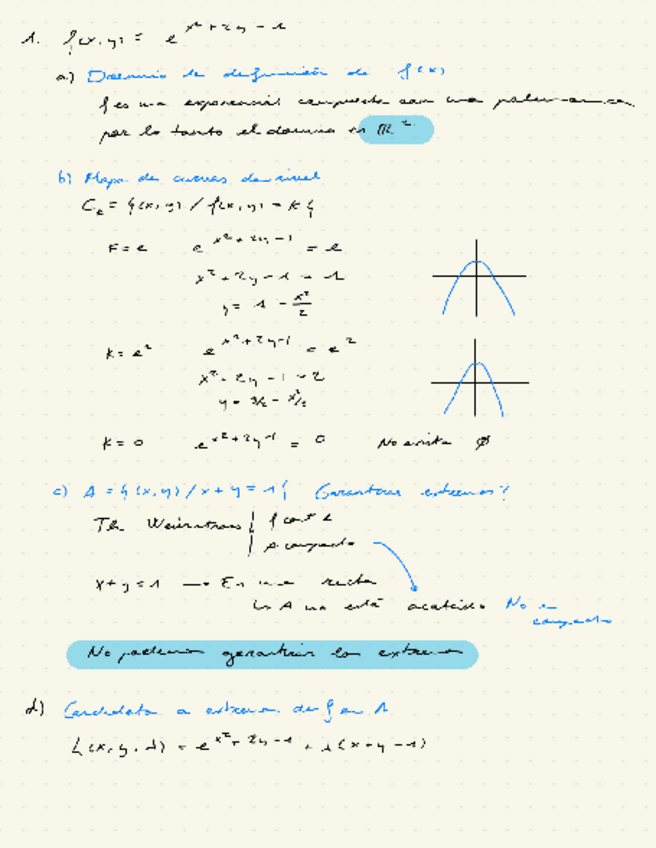 1. f(x,y) = e^{x²+2y-1}
a) Dominio de definición de f(x)
f es una exponencial compuesta con una
por lo tanto el dominio es ℝ²
b) Mapa de curvas de nivel
C_k = {(x,y) / f(x,y) = k}
k = e   e^{x²+2y-1} = e
x²+2y-1 = 1
y = 1 - x²/2
k = e²   e^{x²+2y-1} = e²
x²+2y-1 = 2
y = 3/2 - x²/2
k = 0   e^{x²+2y-1} = 0   No existe ∅
c) A = {(x,y) / x+y = 1}   Garantizar extremos?
Th. Weierstrass { f cont
A compacto
x+y=1 → Es una recta
↳ A no está acotado   No es
compacto
No podemos garantizar los extremos
d) Candidatos a extremos de f en A
L(x,y,λ) = e^{x²+2y-1} + λ(x+y-1)